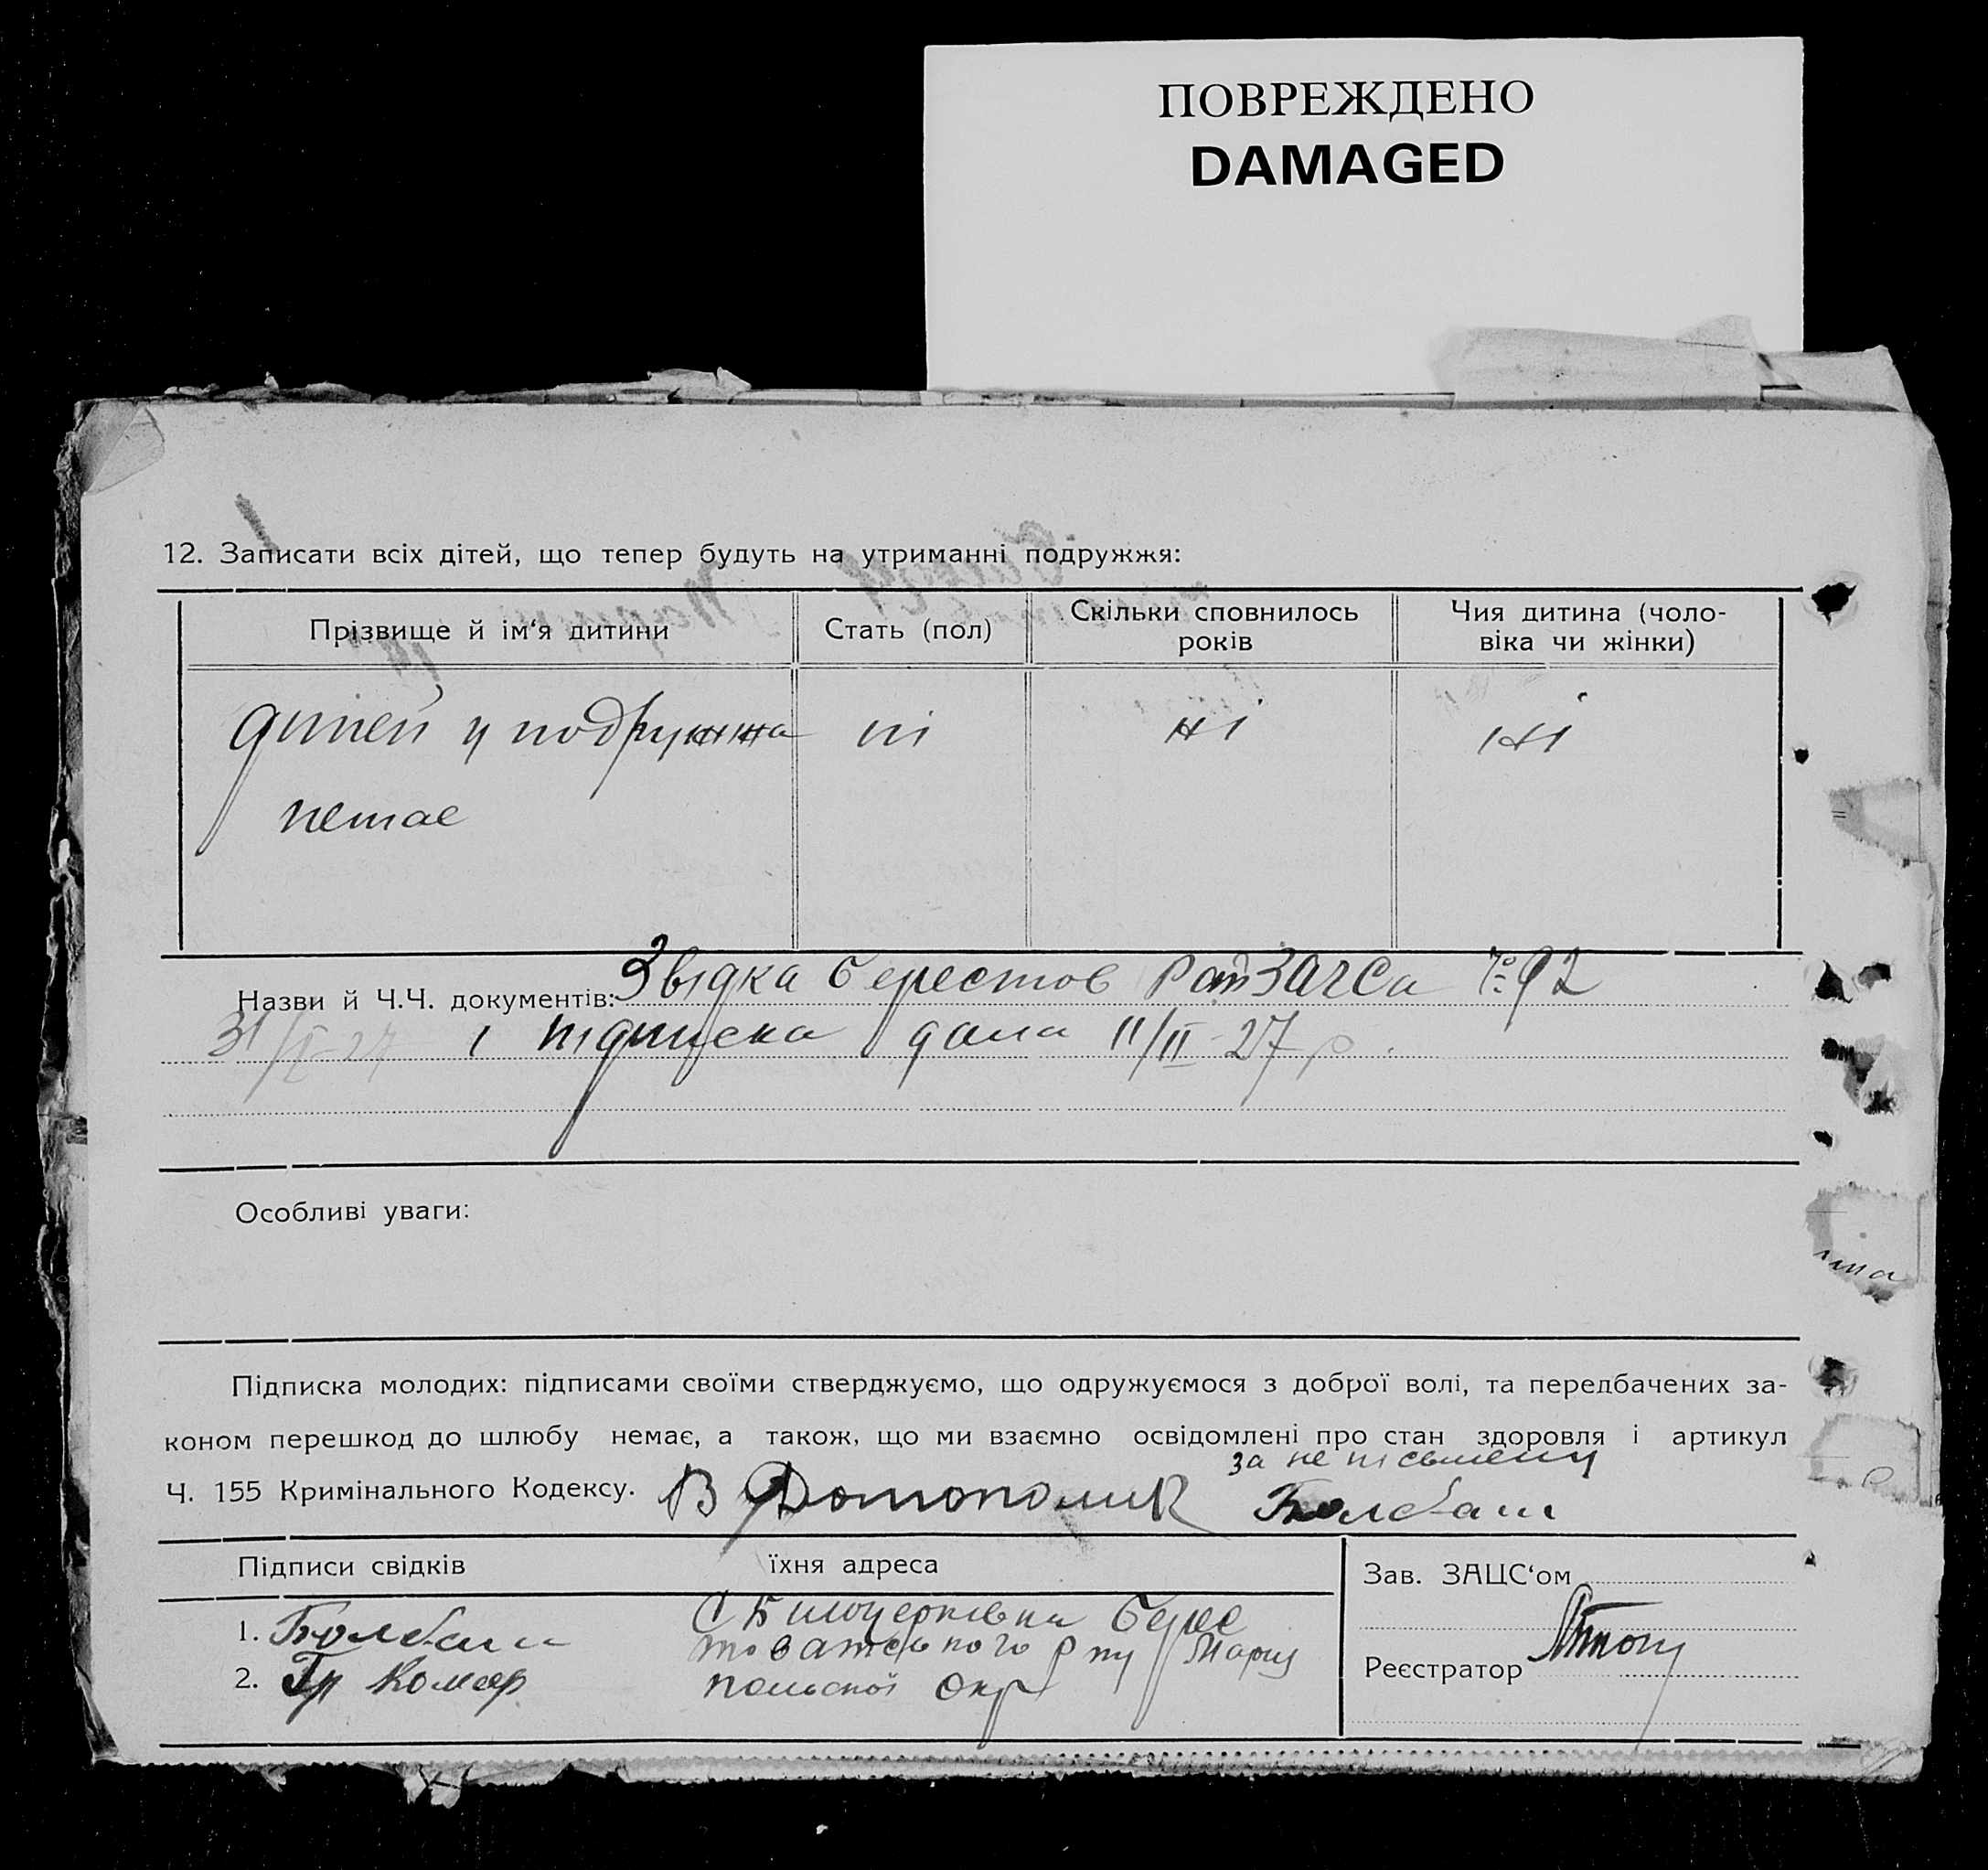 ПОВРЕЖДЕНО
DAMAGED
12. Записати всіх дітей, що тепер будуть на утриманні подружжя:
Прізвище й ім‘я дитини
Стать (пол)
Скільки сповнилось
років
Чия дитина (чоло-
віка чи жінки)
дітей у подружжа ні ні ні
немає
Назви й Ч.Ч. документів: Звідка Берестов РайЗАГСа № 92
31/I-27 і підписка дана 11/II-27 р.
Особливі уваги:
Підписка молодих: підписами своїми стверджуємо, що одружуємося з доброї волі, та передбачених за-
коном перешкод до шлюбу немає, а також, що ми взаємно освідомлені про стан здоровля і артикул
за не письмену
Ч. 155 Кримінального Кодексу. В Болбаш
Підписи свідків
їхня адреса
Зав. ЗАЦС‘ом
1. Болбаш С Білоцерківка Бере
товатського р ну Маріу
2. Гр Комар польської Окр
Реєстратор